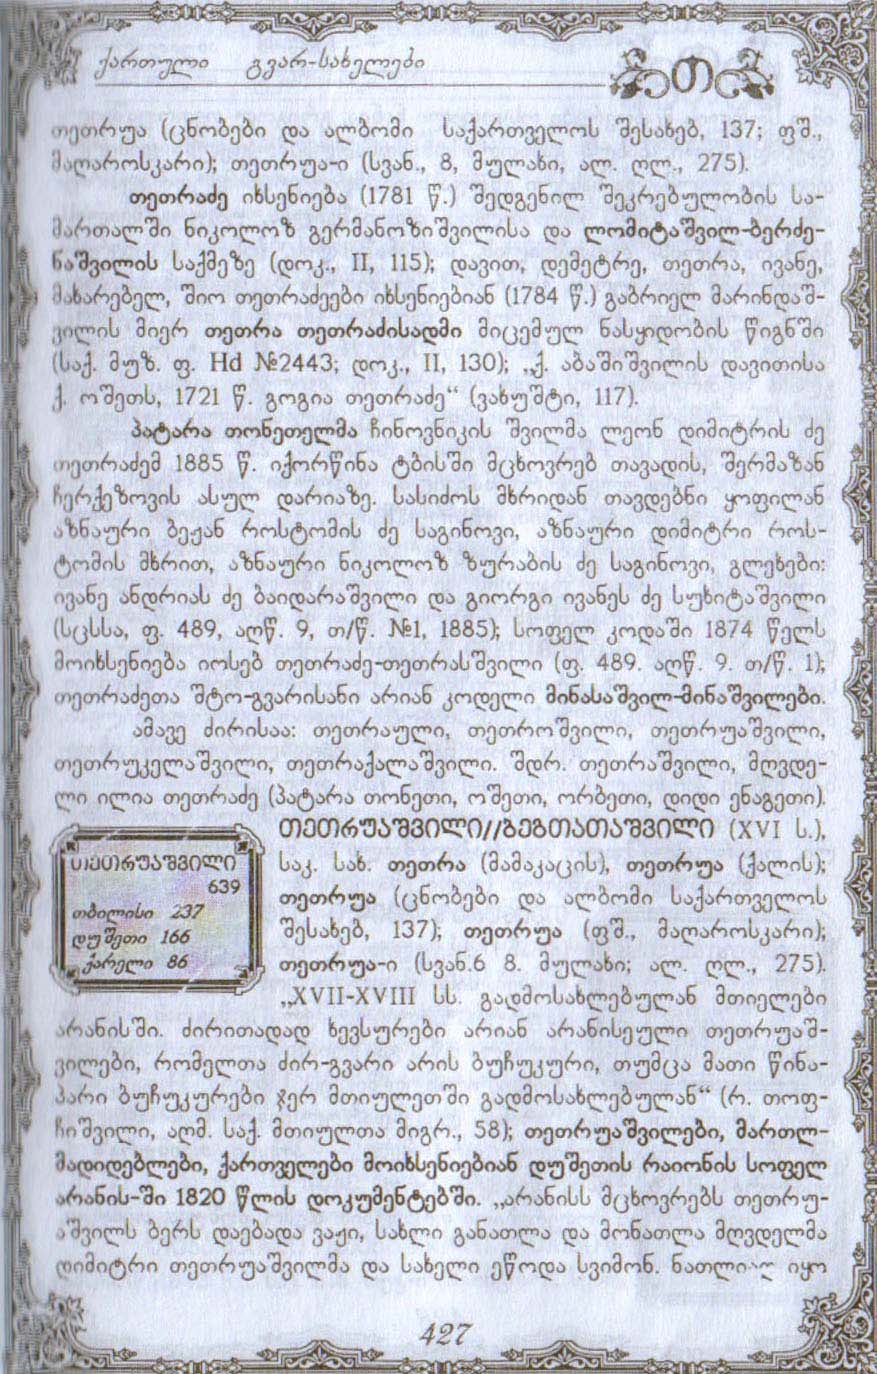 ქართული გვარ-სახელები
თ
თეთრუა (ცნობები და ალბომი საქართველოს შესახებ, 137; ფშ.,
მაღაროსკარი); თეთრუა-ი (სვან., 8, მულახი, ალ. ღლ., 275).
თეთრაძე იხსენიება (1781 წ.) შედგენილ შეკრებულობის სა-
მართალში ნიკოლოზ გერმანოზიშვილისა და ლომიტაშვილ-ბერძე-
ნაშვილის საქმეზე (დოკ., II, 115); დავით, დემეტრე, თეთრა, ივანე,
მახარებელ, შიო თეთრაძეები იხსენიებიან (1784 წ.) გაბრიელ მარინდაშ-
ვილის მიერ თეთრა თეთრაძისადმი მიცემულ ნასყიდობის წიგნში
(საქ. მუზ. ფ. Hd №2443; დოკ., II, 130); „ქ. აბაშიშვილის დავითისა
ქ. ოშეთს, 1721 წ. გოგია თეთრაძე“ (ვახუშტი, 117).
პატარა თონეთელმა ჩინოვნიკის შვილმა ლეონ დიმიტრის ძე
თეთრაძემ 1885 წ. იქორწინა ტბისში მცხოვრებ თავადის, შერმაზან
ჩერქეზოვის ასულ დარიაზე. სასიძოს მხრიდან თავდებნი ყოფილან
აზნაური ბეჟან როსტომის ძე საგინოვი, აზნაური დიმიტრი როს-
ტომის მხრით, აზნაური ნიკოლოზ ზურაბის ძე საგინოვი, გლეხები:
ივანე ანდრიას ძე ბაიდარაშვილი და გიორგი ივანეს ძე სუხიტაშვილი
(სცსსა, ფ. 489, აღწ. 9, თ/წ. №1, 1885); სოფელ კოდაში 1874 წელს
მოიხსენიება იოსებ თეთრაძე-თეთრასშვილი (ფ. 489. აღწ. 9. თ/წ. 1);
თეთრაძეთა შტო-გვარისანი არიან კოდელი მინასაშვილ-მინაშვილები.
ამავე ძირისაა: თეთრაული, თეთროშვილი, თეთრუაშვილი,
თეთრუკელაშვილი, თეთრაქალაშვილი. შდრ. თეთრაშვილი, მღვდე-
ლი ილია თეთრაძე (პატარა თონეთი, ოშეთი, ორბეთი, დიდი ენაგეთი).
თეთრუაშვილი//ბეგთათაშვილი (XVI ს.),
საკ. სახ. თეთრა (მამაკაცის), თეთრუა (ქალის);
თეთრუა (ცნობები და ალბომი საქართველოს
შესახებ, 137); თეთრუა (ფშ., მაღაროსკარი);
თეთრუა-ი (სვან.6 8. მულახი; ალ. ღლ., 275).
„XVII-XVIII სს. გადმოსახლებულან მთიელები
თეთრუაშვილი
639
თბილისი 237
დუშეთი 166
ქარელი 86
არანისში. ძირითადად ხევსურები არიან არანისეული თეთრუაშ-
ვილები, რომელთა ძირ-გვარი არის ბუჩუკური, თუმცა მათი წინა-
პარი ბუჩუკურები ჯერ მთიულეთში გადმოსახლებულან“ (რ. თოფ-
ჩიშვილი, აღმ. საქ. მთიულთა მიგრ., 58); თეთრუაშვილები, მართლ-
მადიდებლები, ქართველები მოიხსენიებიან დუშეთის რაიონის სოფელ
არანის-ში 1820 წლის დოკუმენტებში. „არანისს მცხოვრებს თეთრუ-
აშვილს ბერს დაებადა ვაჟი, სახლი განათლა და მონათლა მღვდელმა
დიმიტრი თეთრუაშვილმა და სახელი ეწოდა სვიმონ. იყო
427